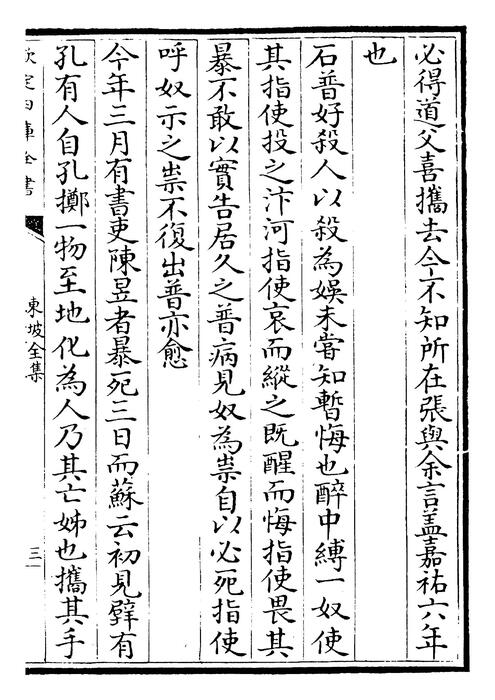 必得道父喜攜去今不知所在張與余言盖嘉祐六年
也
石普好殺人以殺為娱未嘗知暫悔也醉中縛一奴使
其指使投之汴河指使哀而縱之既醒而悔指使畏其
暴不敢以實告居久之普病見奴為祟自以必死指使
呼奴示之祟不復出普亦愈
今年三月有書吏陳昱者暴死三日而蘇云初見壁有
孔有人自孔擲一物至地化為人乃其亡姊也攜其手
欽定四庫全書
東坡全集
三